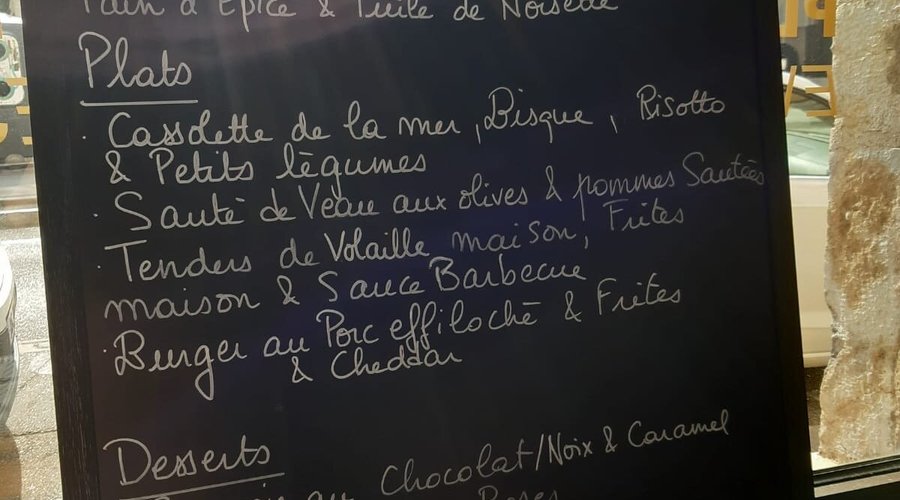 Pain d'Epice & Tuile de Noisette
Plats
· Cassolette de la mer, Bisque, Risotto
& Petits légumes
· Sauté de Veau aux olives & pommes Sautées
· Tenders de Volaille maison, Frites
maison & Sauce Barbecue
· Burger au Porc effiloché & Frites
& Cheddar
Desserts
au Chocolat/Noix & Caramel
Roses